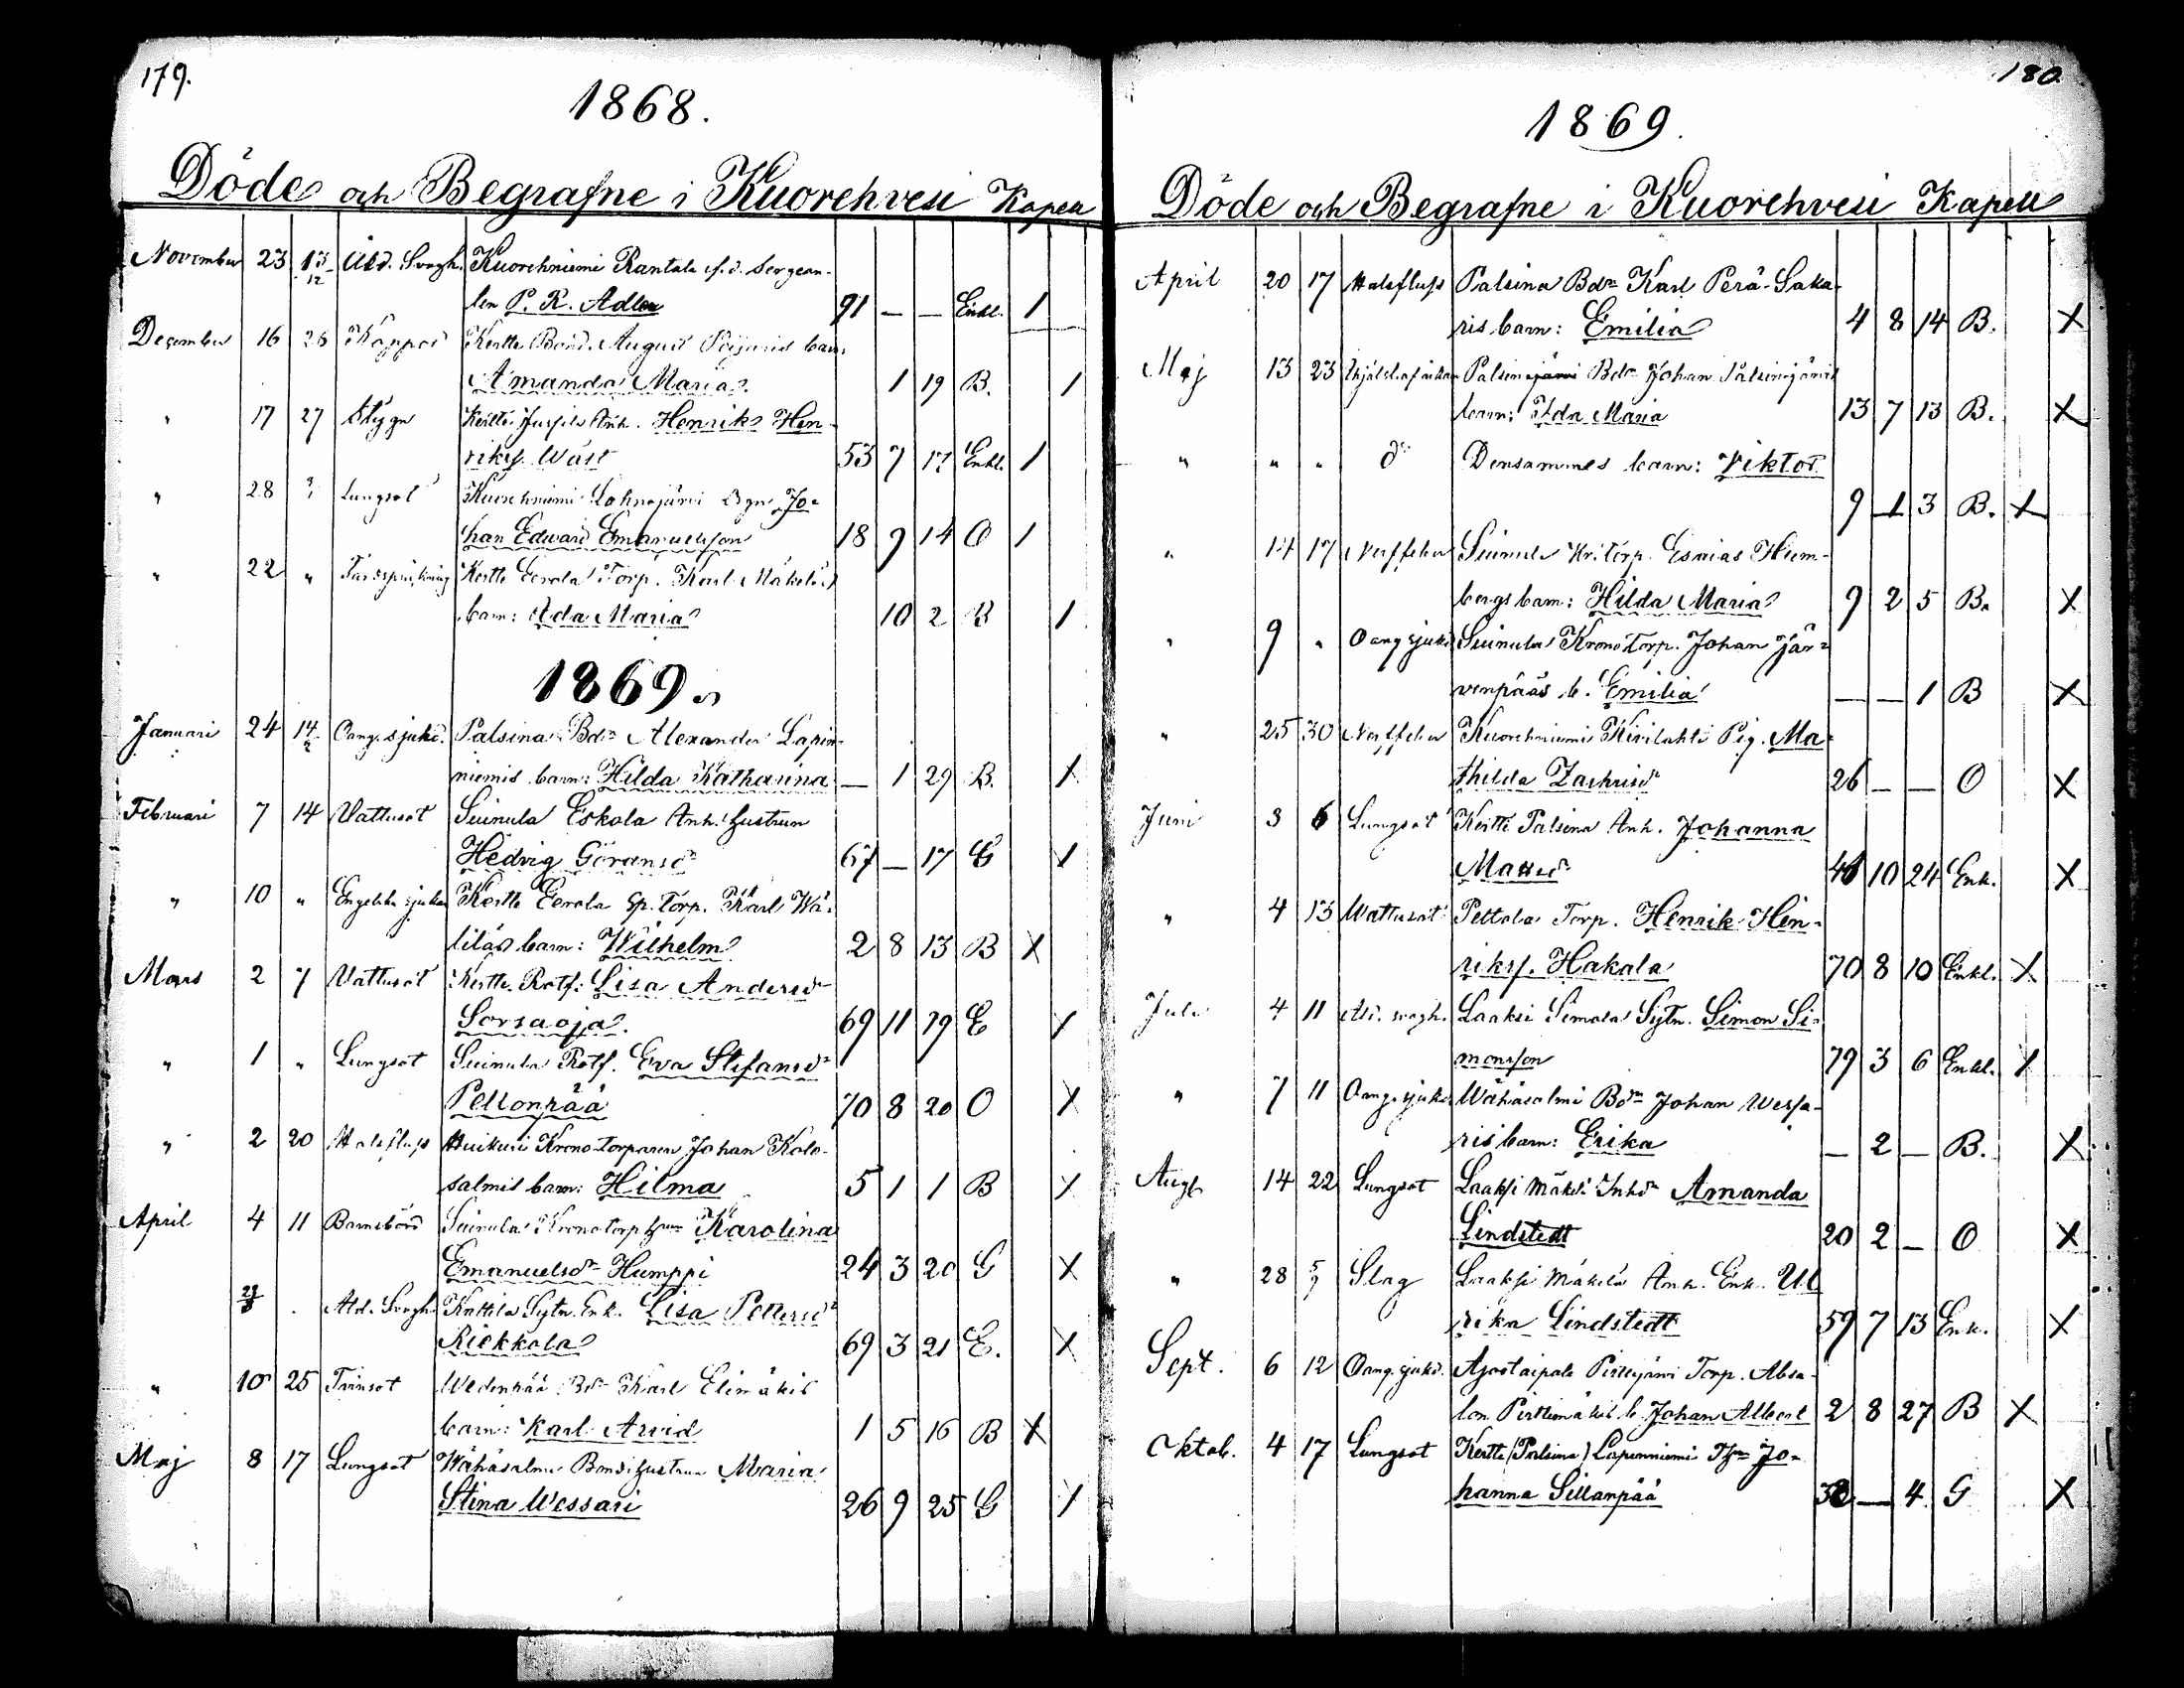 179.
1868.
Döde och Begrafne i Kuorehvesi Kapell
November 23 13/12 Åld. Svagh. Kuorehniemi Rantala f.d. Sergean-
ten P. R. Adler 91 — — Enkl. 1
December 16 26 Koppor Kertte Bond. August barn
Amanda Maria 1 19 B. 1
" 17 27 Stygn Kertte Anh. Henrik Hen-
rikss. Wäst 53 7 17 Enkl. 1
" 28 Lungsot Kuorehniemi Lohnajärvi Jo-
han Edward Emanuelsson 18 9 14 O 1
" 22 " Kertte Eerola Torp. Karl Mäkelä's
barn: Ada Maria 10 2 B 1
1869.
Januari 24 14/2 Oang. sjukd. Palsina Bdn Alexander Lapin-
niemis barn: Hilda Katharina — 1 29 B. 1
Februari 7 14 Vattusot Suinula Eskola Anh. hustrun
Hedvig Göransdr 67 — 17 G 1
" 10 " Engelska sjukan Kertte Eerola Sp. Torp. Karl Wä-
liläs barn: Wilhelm 2 8 13 B X
Mars 2 7 Vattusot Kertte Rotf. Lisa Andersdr
Sorsaoja. 69 11 19 E X
" 1 " Lungsot Suinula Rotf. Eva Stefansdr
Pellonpää 70 8 20 O X
" 2 20 Halsfluss Huikuri Krono-torparen Johan Kolo-
salmis barn: Hilma 5 1 1 B X
April 4 11 Barnsbörd Suinula Kronotorp. hun Karolina
Emanuelsdr Humppi 24 3 20 G X
Ald. Svagh. Kattila Sytn. Enk. Lisa Pettersdr
Riekkola 69 3 21 E. X
" 10 25 Tvinsot Wedenpää Bdn Karl Elimäkis
barn: Karl Arvid 1 5 16 B X
Maj 8 17 Lungsot Wähäsalmi Bondehustrun Maria
Stina Wessari 26 9 25 G X
180.
1869.
Döde och Begrafne i Kuorehvesi Kapell
April 20 17 Halsfluss Palsina Bdn Karl Perä-Saka-
ris barn: Emilia 4 8 14 B. X
Maj 13 23 Palsina Bdn Johan Palsinajärvis
barn: Ida Maria 13 7 13 B. X
" " " do Densammes barn: Viktor
9 1 3 B. X
" 14 17 Nerffeber Suinula Kr. Torp. Esaias Hum-
bergs barn: Hilda Maria 9 2 5 B. X
" 9 " Oang sjukd. Suinula Kronotorp. Johan Jär-
venpääs b. Emilia — — 1 B X
" 25 30 Nerffeber Kuorehniemi Kivilahti Pig. Ma-
thilda Zachrisdr 26 — — O X
Juni 3 6 Lungsot Kertte Palsina Anh. Johanna
Mattsdr 46 10 24 Enk. X
" 4 13 Wattusot Pettola Torp. Henrik Hen-
rikss. Hakala 70 8 10 Enkl. X
Juli 4 11 Åld. svagh. Laaksi Simola Sytn. Simon Si-
monsson 79 3 6 Enkl. X
" 7 11 Oang. sjukd. Wähäsalmi Bdn Johan Wessa-
ris barn: Erika — 2 — B. X
Aug. 14 22 Lungsot Laaksi Mäkelä Inhdr Amanda
Lindstedt 20 2 — O X
" 28 5/9 Slag Laaksi Mäkelä Anh. Enk. Ul-
rika Lindstedt 59 7 13 Enk. X
Sept. 6 12 Oang. sjukd. Ajostaipale Pitkäjärvi Torp. Absa-
lon Pirttimäkis b. Johan Albert 2 8 27 B X
Oktob. 4 17 Lungsot Kertte (Palsina) Lapinniemi Jo-
hanna Sillanpää — 4 G X